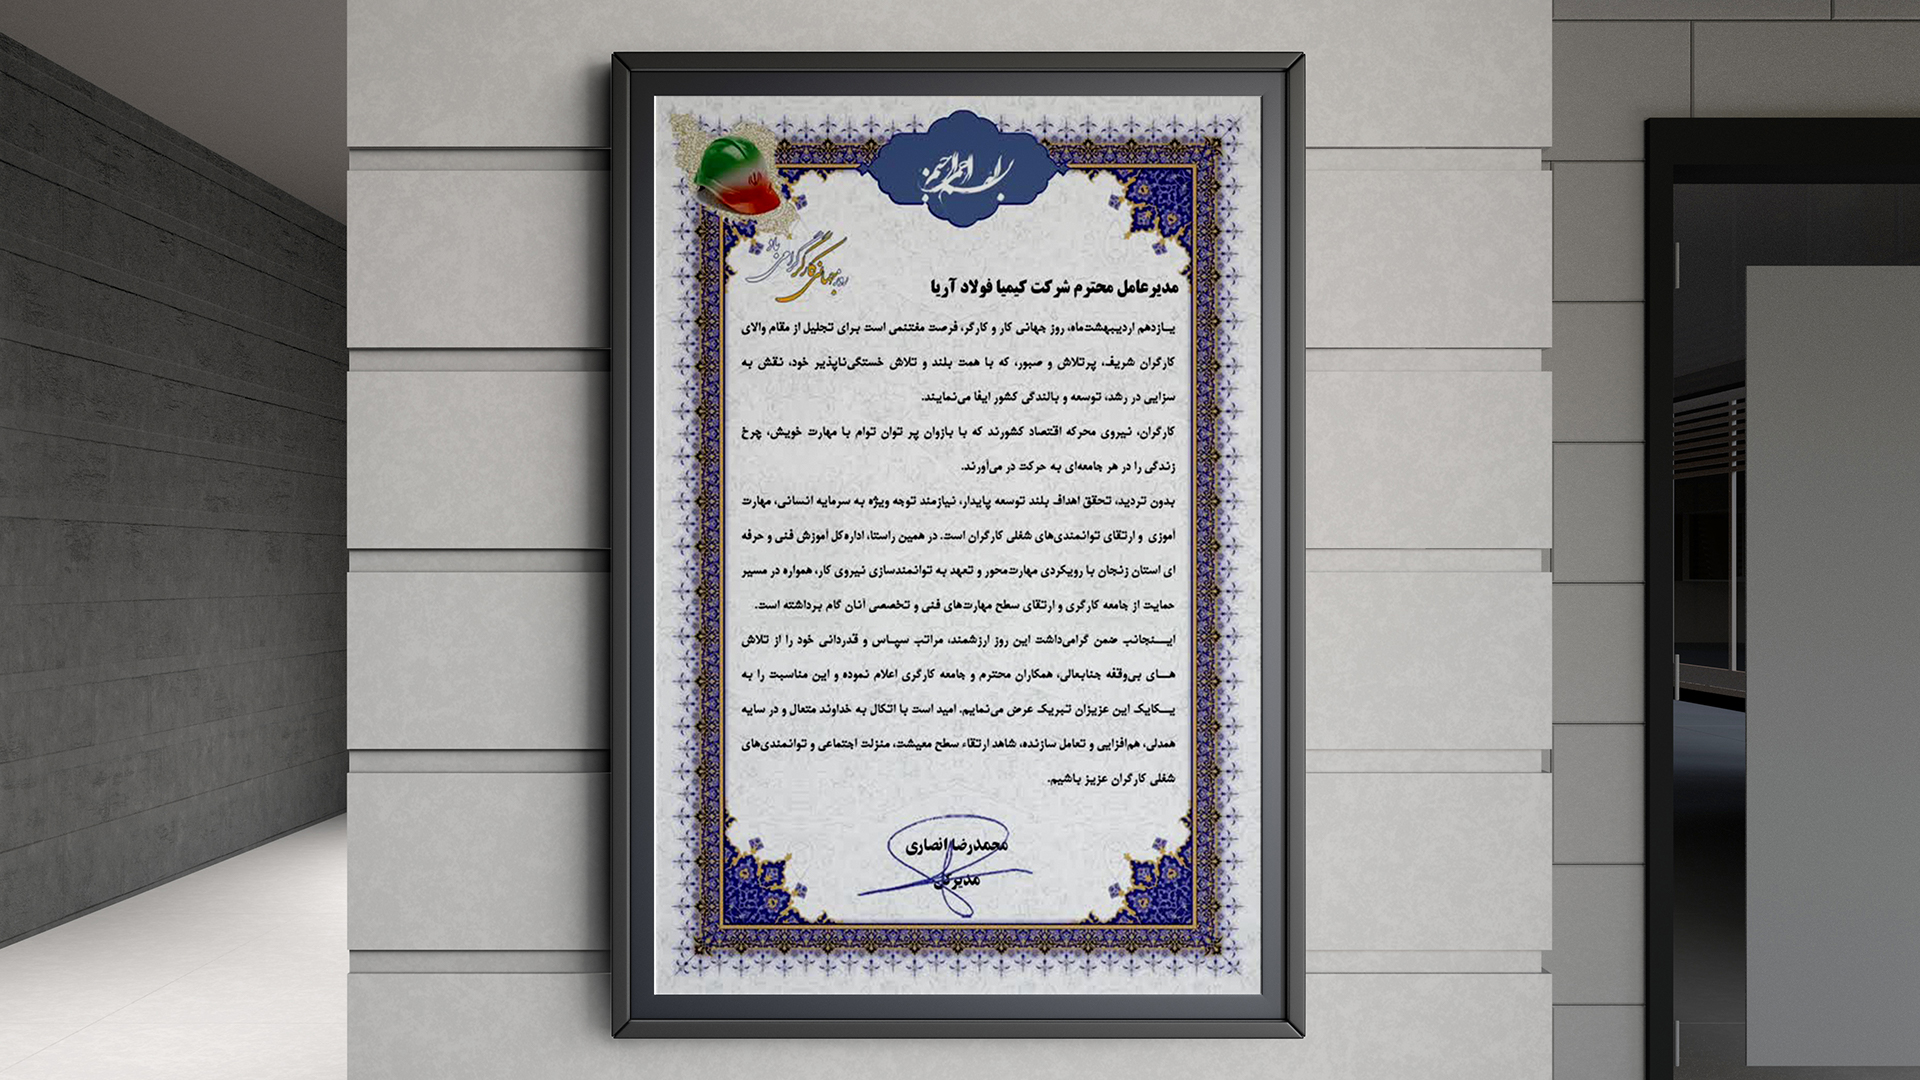 بسم الله الرحمن الرحیم
روز جهانی کارگر گرامی باد
مدیرعامل محترم شرکت کیمیا فولاد آریا
یـازدهم اردیـبهشت‌ماه، روز جهانی کار و کارگر، فرصت مغتنمی است برای تجلیل از مقام والای
کارگران شریف، پرتلاش و صبور، که با همت بلند و تلاش خستگی‌ناپذیر خود، نقش به
سزایی در رشد، توسعه و بالندگی کشور ایفا می‌نمایند.
کارگران، نیروی محرکه اقتصاد کشورند که با بازوان پر توان توام با مهارت خویش، چرخ
زندگی را در هر جامعه‌ای به حرکت در می‌آورند.
بدون تردید، تحقق اهداف بلند توسعه پایدار، نیازمند توجه ویژه به سرمایه انسانی، مهارت
آموزی و ارتقای توانمندی‌های شغلی کارگران است. در همین راستا، اداره‌کل آموزش فنی و حرفه
ای استان زنجان با رویکردی مهارت‌محور و تعهد به توانمندسازی نیروی کار، همواره در مسیر
حمایت از جامعه کارگری و ارتقای سطح مهارت‌های فنی و تخصصی آنان گام برداشته است.
ایـــنجانب ضمن گرامی‌داشت این روز ارزشمند، مراتب سپـاس و قدردانی خود را از تلاش
هــای بی‌وقفه جنابعالی، همکاران محترم و جامعه کارگری اعلام نموده و این مناسبت را به
یــکایک این عزیزان تبریک عرض می‌نمایم. امید است با اتکال به خداوند متعال و در سایه
همدلی، هم‌افزایی و تعامل سازنده، شاهد ارتقاء سطح معیشت، منزلت اجتماعی و توانمندی‌های
شغلی کارگران عزیز باشیم.
محمدرضا انصاری
مدیرکل